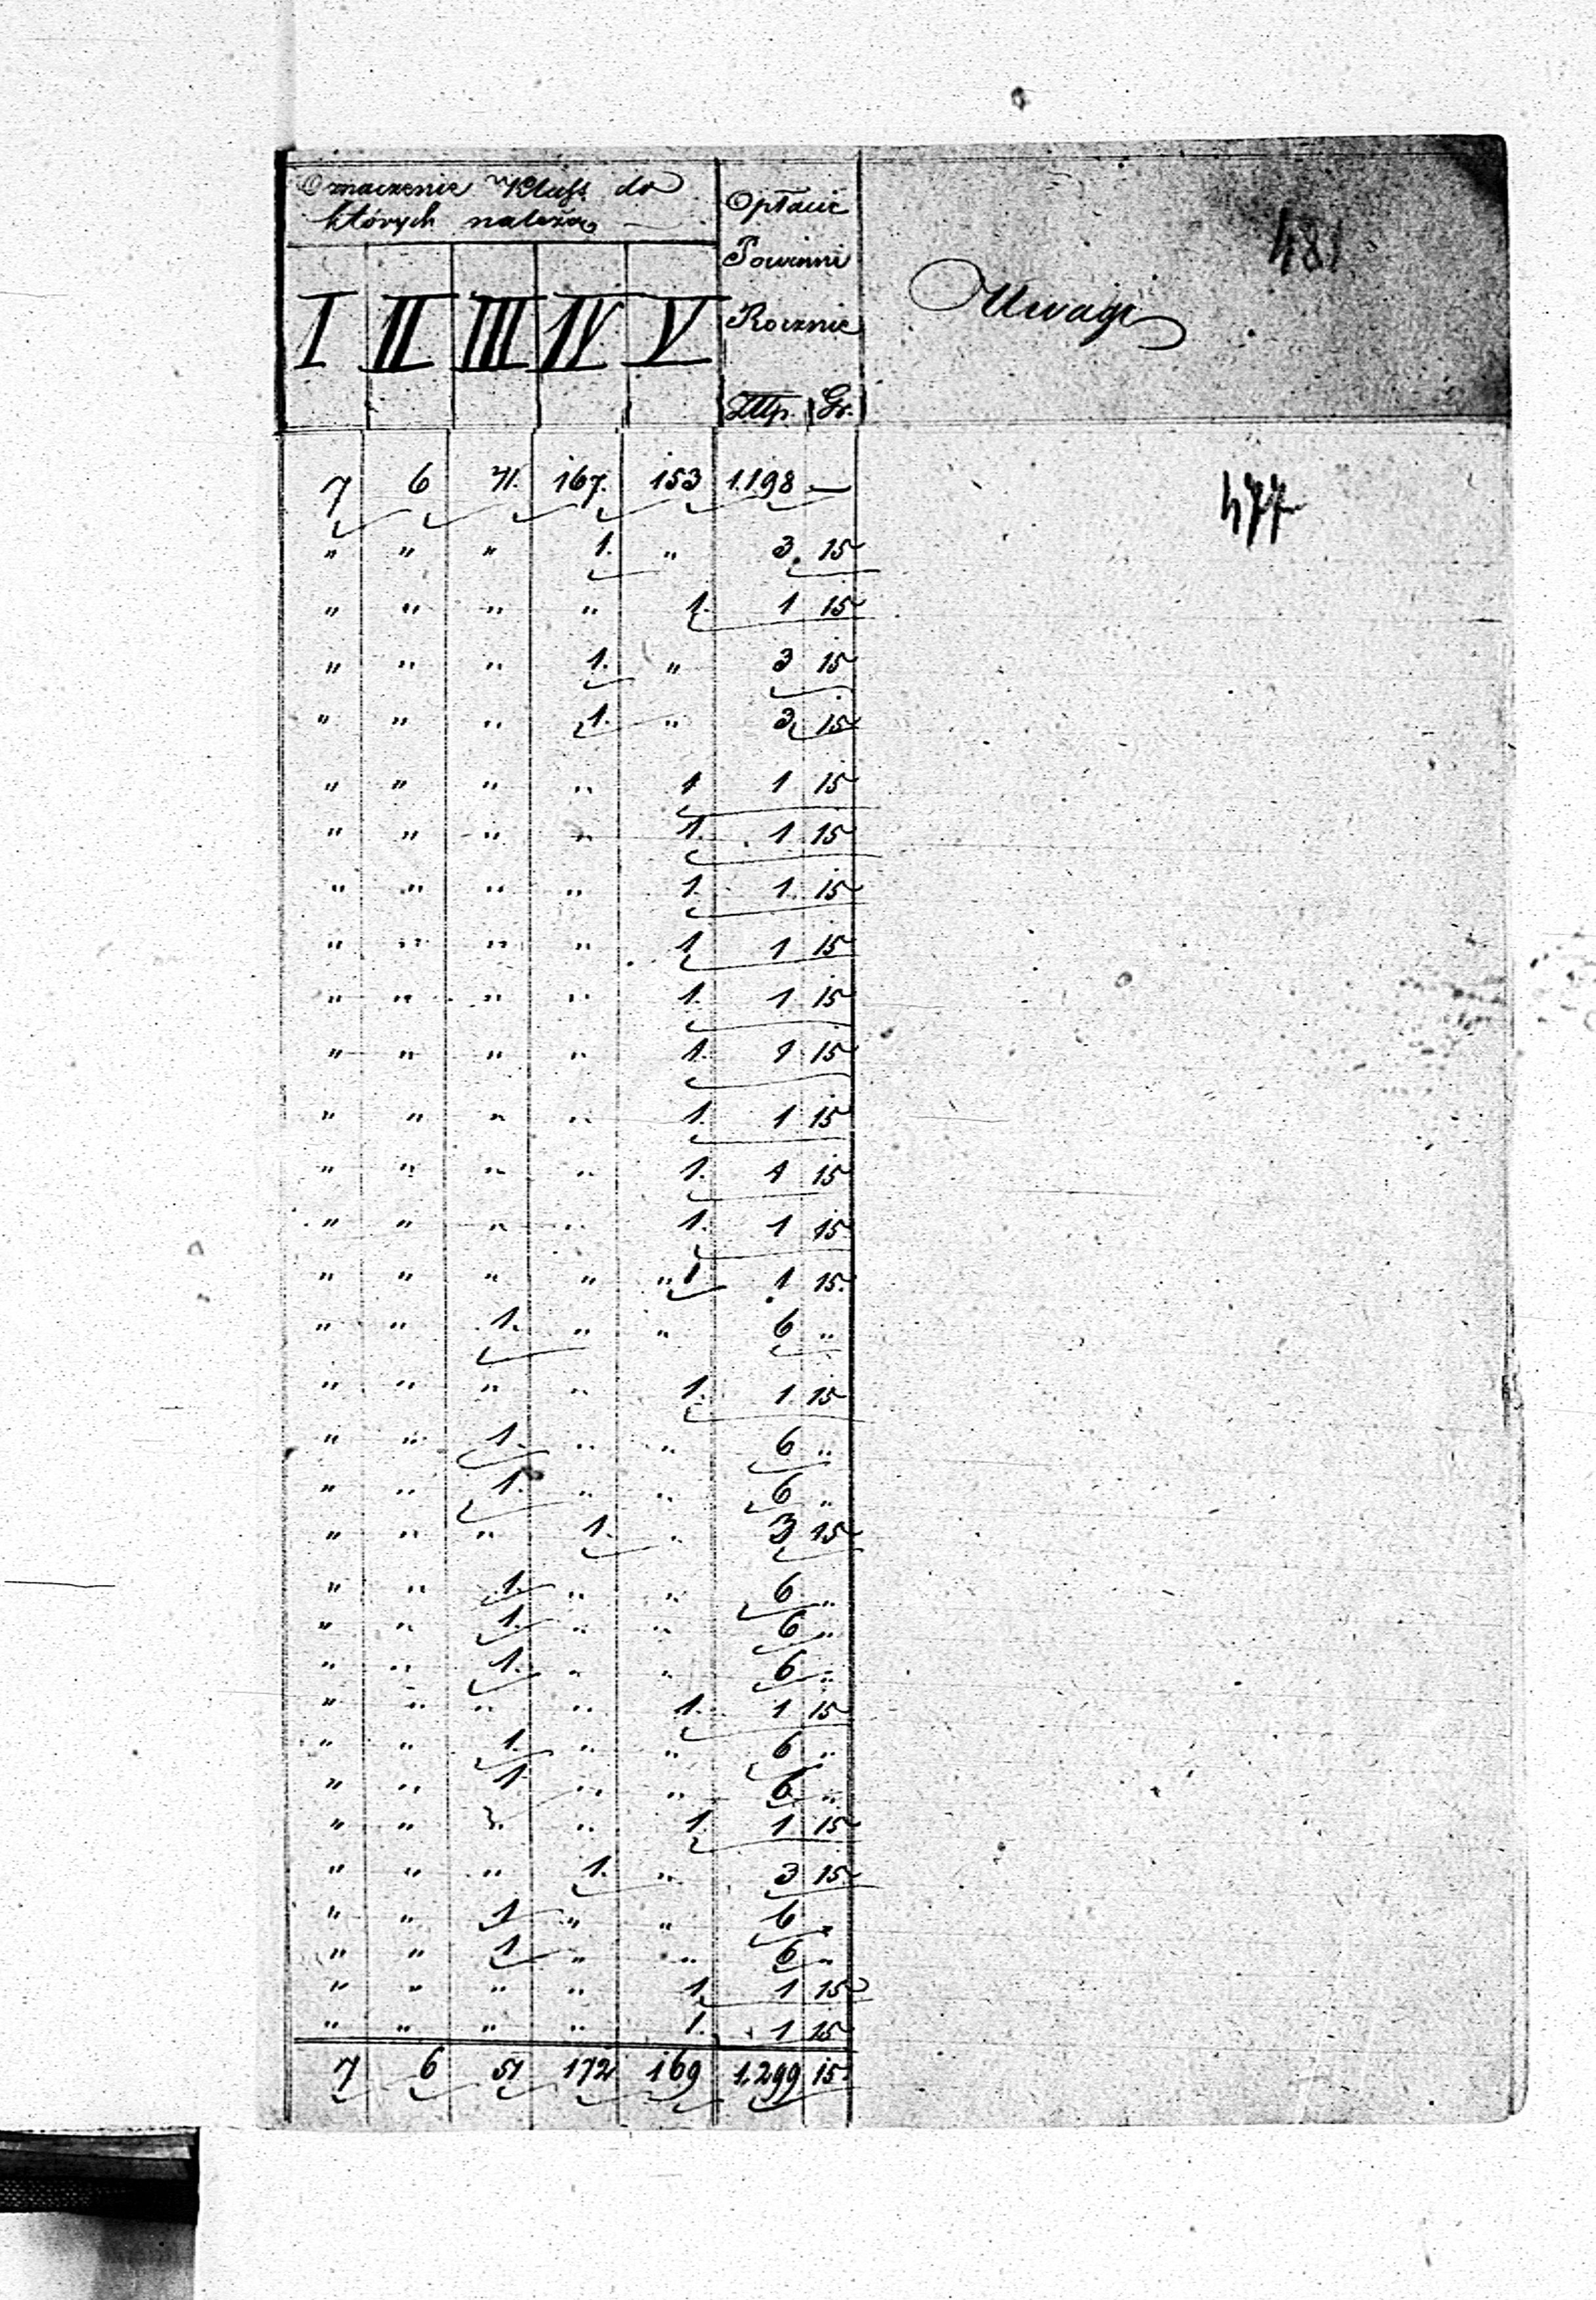 Oznaczenie Klass. do
których należą
Opłacić
Powinni
Rocznie
Uwagi
481
I II III IV V Złłp. Gr.
7 6 41. 167. 153 1.198 —
477
" " " 1. " 3. 15
" " " " 1. 1 15
" " " 1. " 3 15
" " " 1. " 3 15
" " " " 1 1 15
" " " " 1. 1 15
" " " " 1. 1. 15
" " " " 1 1 15
" " " " 1. 1 15
" " " " 1. 1 15
" " " " 1. 1 15
" " " " 1. 1 15
" " " " 1. 1 15
" " " " "1 1 15.
" " 1. " " 6 "
" " " " 1. 1. 15
" " 1. " " 6 "
" " 1. " " 6 "
" " " 1. " 3 15
" " 1. " " 6 "
" " 1. " " 6 "
" " 1. " " 6 "
" " " " 1. 1 15
" " 1. " " 6 "
" " 1. " " 6 "
" " " " 1. 1. 15
" " " 1. " 3 15
" " 1 " " 6 "
" " 1 " " 6 "
" " " " 1. 1 15
" " " " 1. 1 15
7 6 51 172 169 1.299 15.